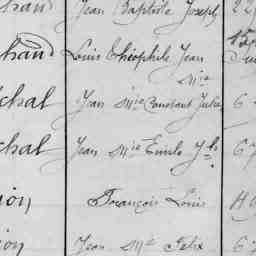 Jean Baptiste Joseph 22
chand Louis Théophile Jean
Mie
chal Jean Mie Constant Jules 6
chal Jean Mie Emile Jh 67
ion François Louis
ion Jean Me Felix 67